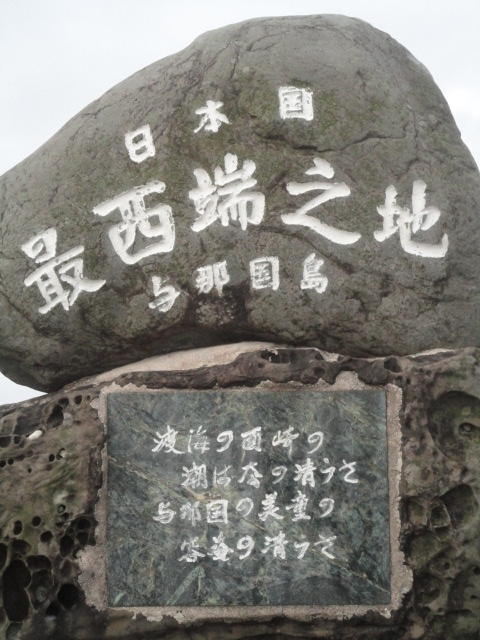 日本国
最西端之地
与那国島
渡海の西崎の
潮はなの清らさ
与那国の美童の
容姿の清ラさ